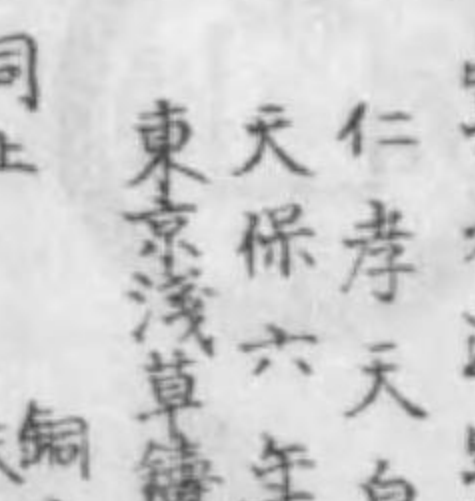 仁孝天
天保六年
東京淺草鑄
銅
同上